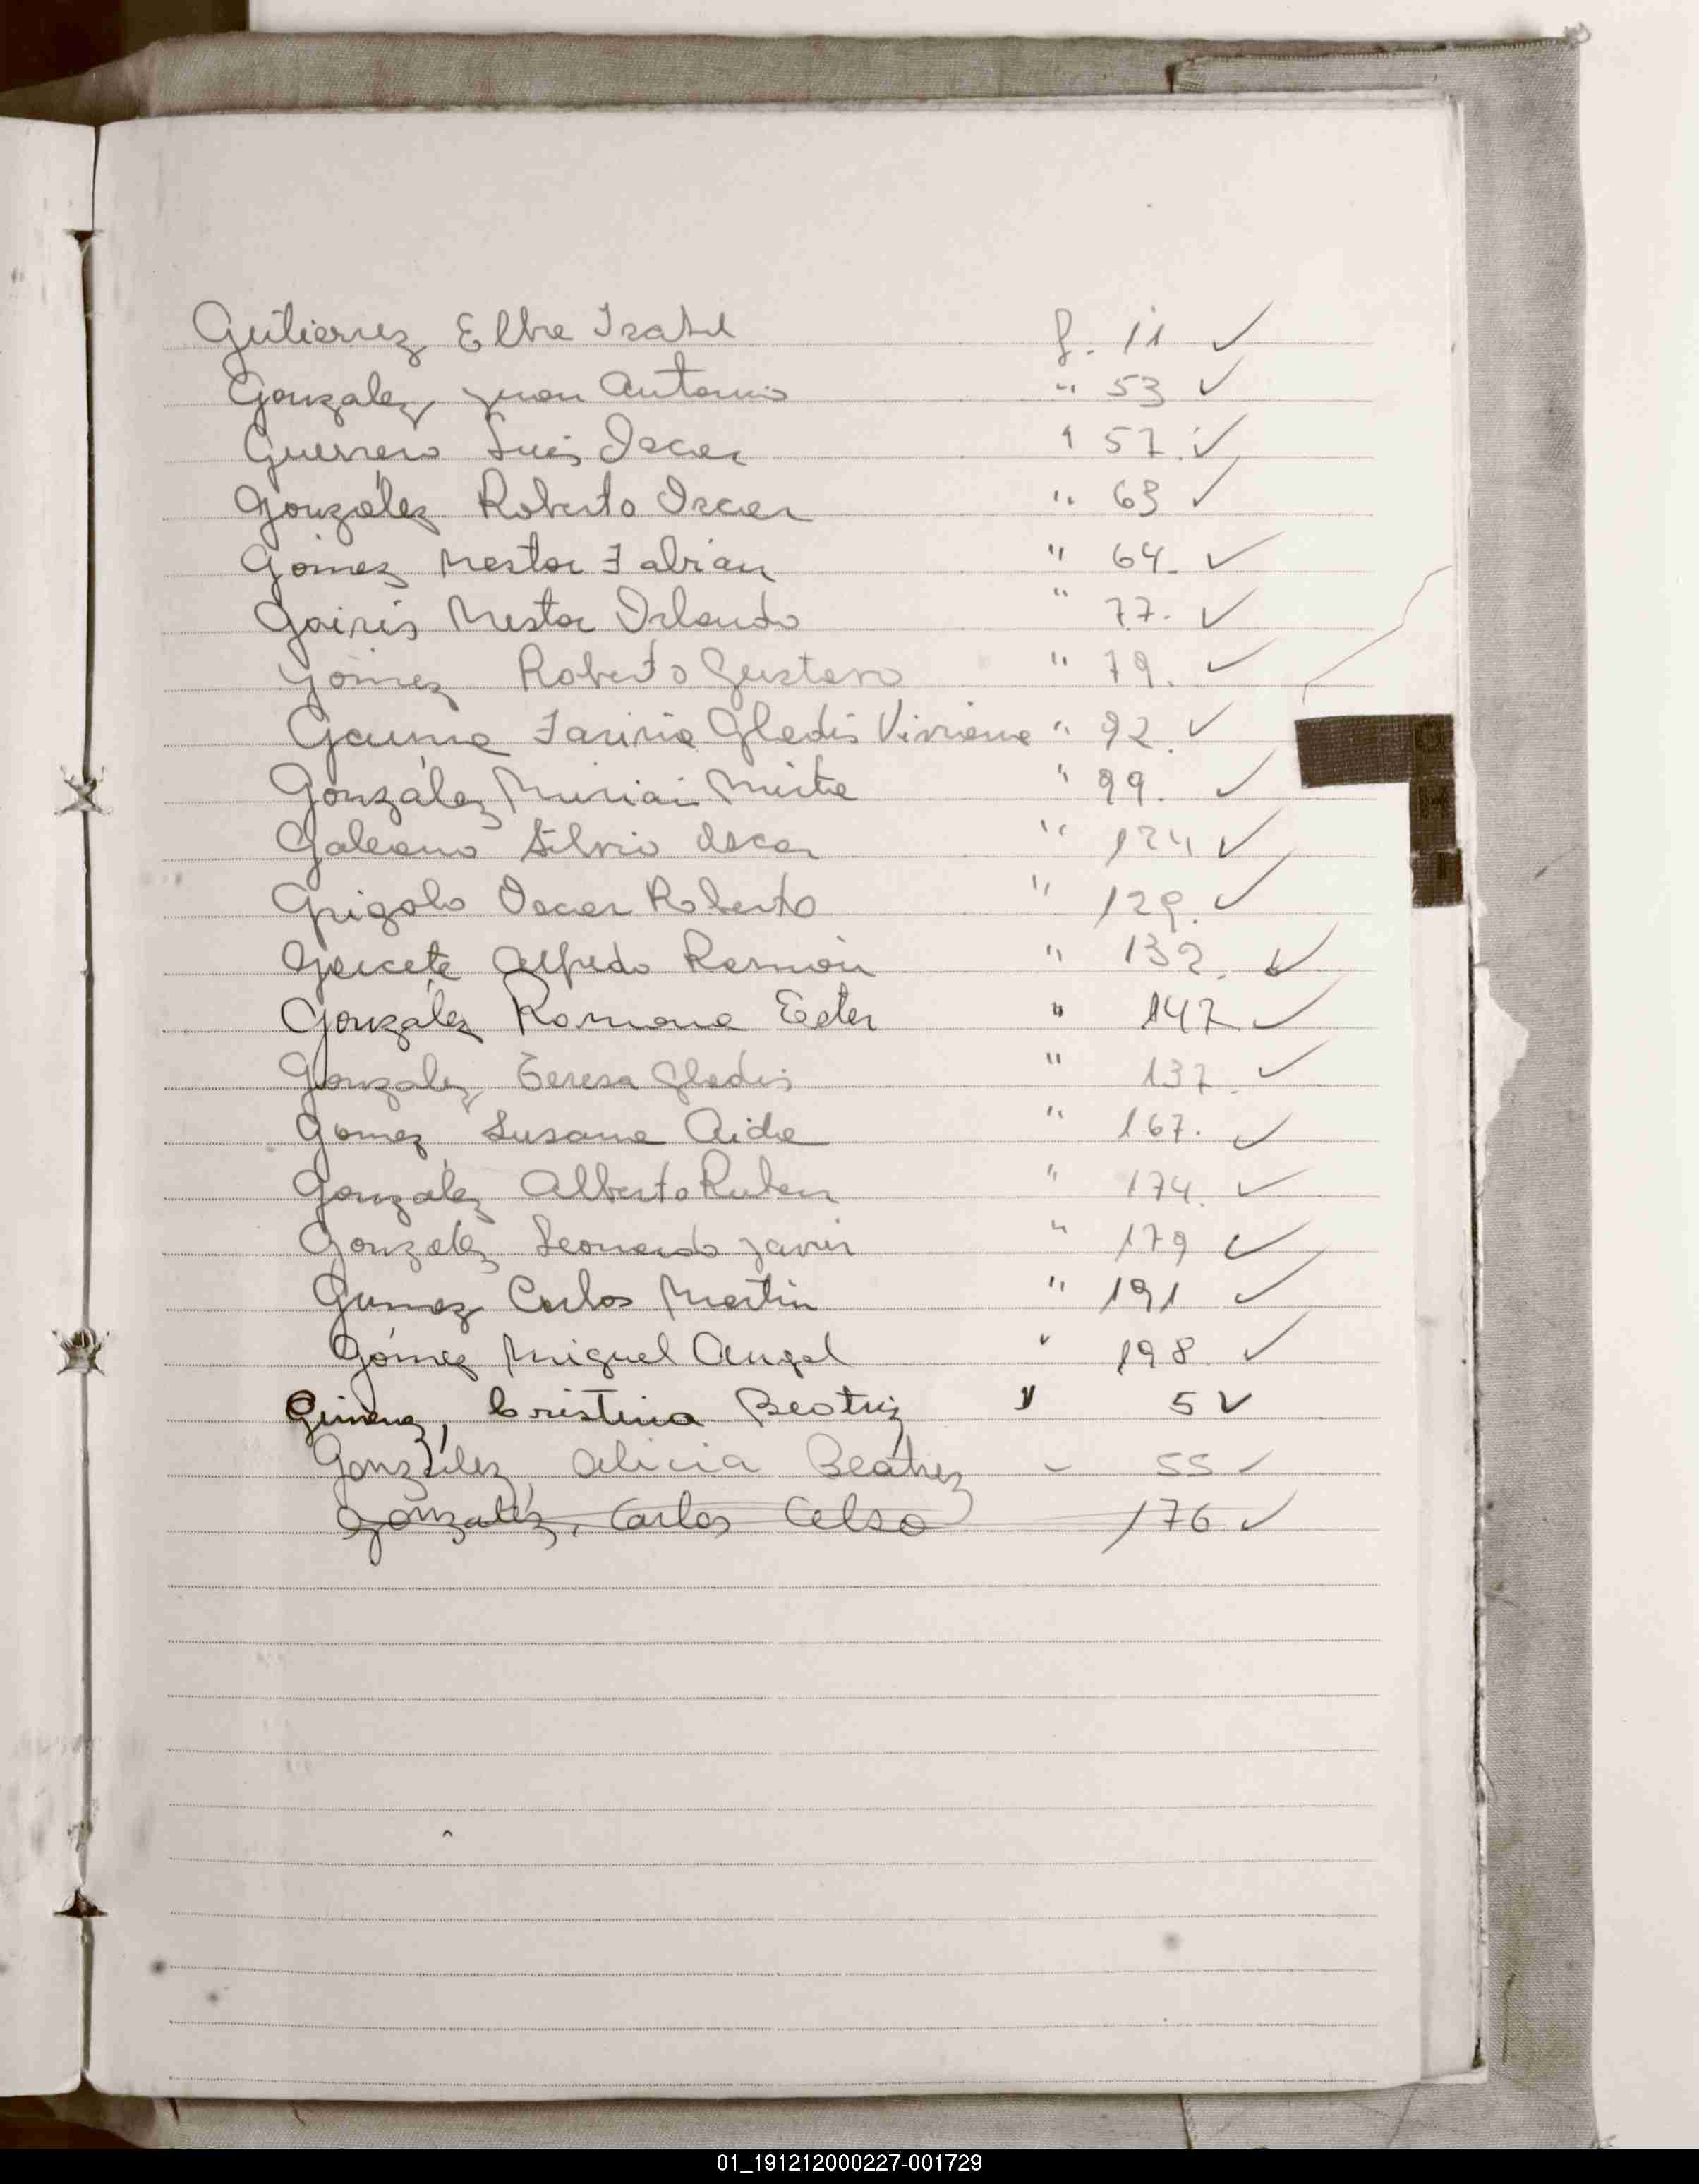 Gutierrez Elba Isabel f. 11 ✓
Gonzalez Juan Antonio " 53 ✓
Guerrero Luis Oscar " 57. ✓
González Roberto Oscar " 63 ✓
Gómez Nestor Fabián " 64. ✓
Nestor Orlando " 77. ✓
Gómez Roberto Gustavo " 79. ✓
Gladis Viviana " 92. ✓
González Mirta " 99. ✓
Galeano Silvio Oscar " 124 ✓
Grigolo Oscar Roberto " 129. ✓
Garcete Alfredo Ramón " 132. ✓
González Romana Ester " 147 ✓
Gonzalez Teresa Gladis " 137. ✓
Gomez Susana Aida " 167. ✓
González Alberto Ruben " 174. ✓
González Leonardo Javier " 179 ✓
Gomez Carlos Martin " 191 ✓
Gómez Miguel Angel " 198. ✓
Gimenez, Cristina Beatriz " 5 ✓
González, Alicia Beatriz - 55 ✓
González, Carlos Celso 176 ✓
G
H
I
01_191212000227-001729